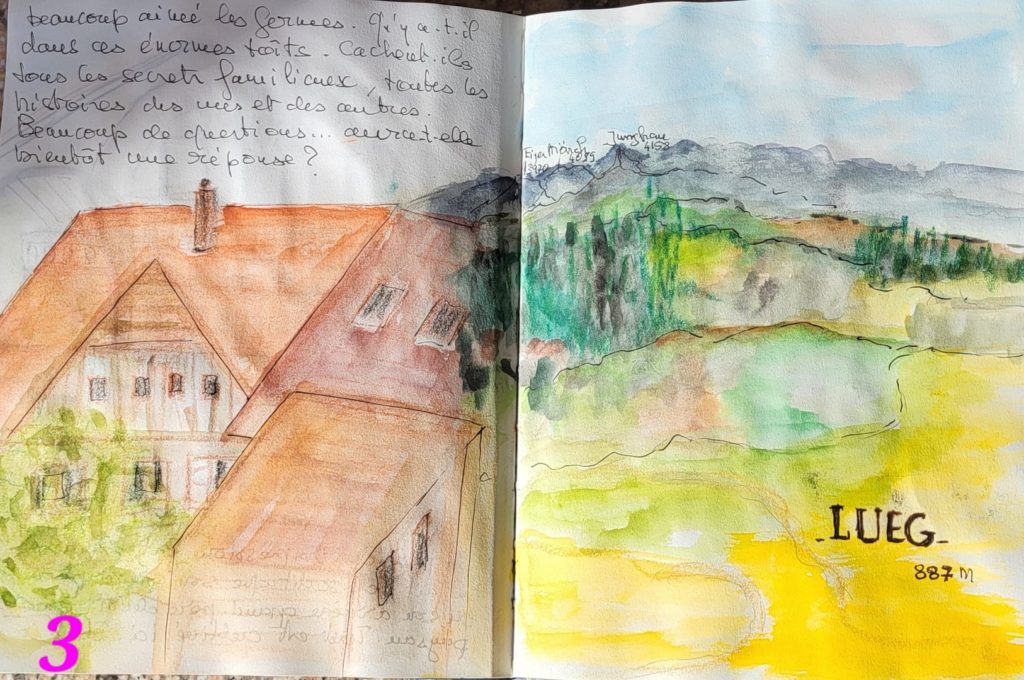 beaucoup aimé les fermes. Qu'y a-t-il
dans ces énormes toîts. Cachent-ils
tous les secrets familiaux, toutes les
histoires des unes et des autres.
Beaucoup de questions... aura-t-elle
bientôt une réponse ?
Eiger
3970
Mönch
Jungfrau
4158
-LUEG-
887 m
3